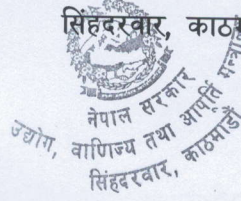 सिंहदरवार, काठ
नेपाल सरकार
उद्योग, वाणिज्य तथा आपूर्ति मन्त्रा
सिंहदरवार, काठमाडौं